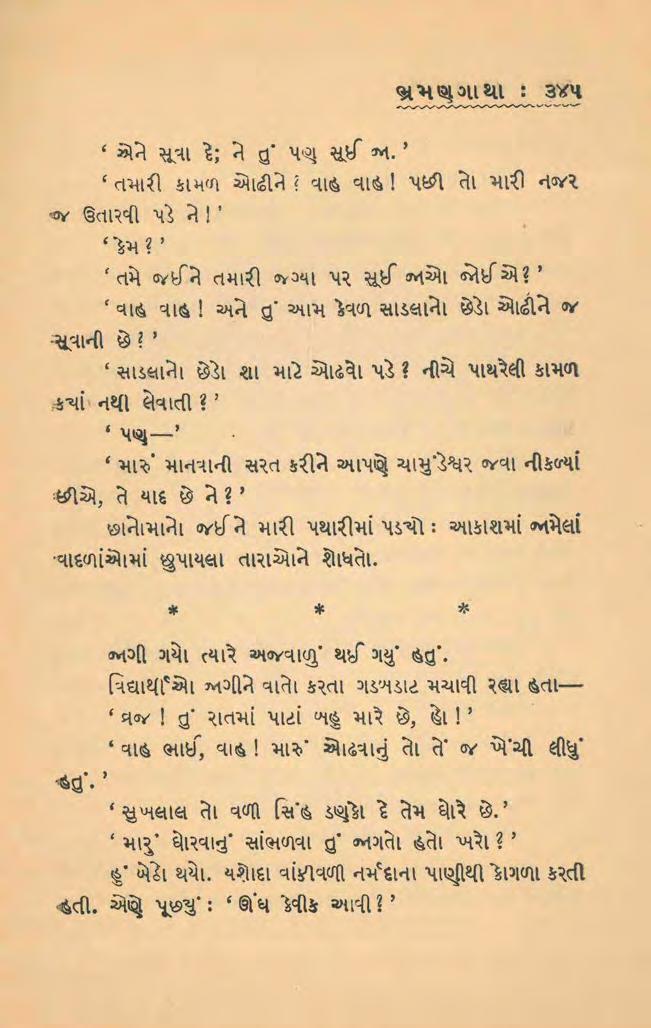 ભ્રમણગાથા : ૩૪૫
‘ એને સૂવા દે; ને તું પણ સૂઈ જા. ’
‘ તમારી કામળ ઓઢીને ? વાહ વાહ ! પછી તો મારી નજર
જ ઉતારવી પડે ને ! ’
‘ કેમ ? ’
‘ તમે જઈને તમારી જગ્યા પર સૂઈ જાઓ જોઈએ? ’
‘ વાહ વાહ ! અને તું આમ કેવળ સાડલાનો છેડો ઓઢીને જ
સૂવાની છે ? ’
‘ સાડલાનો છેડો શા માટે ઓઢવો પડે ? નીચે પાથરેલી કામળ
ક્યાં નથી લેવાતી ? ’
‘ પણ— ’
‘ મારું માનવાની સરત કરીને આપણે ચામુંડેશ્વર જવા નીકળ્યાં
છીએ, તે યાદ છે ને ? ’
છાનોમાનો જઈને મારી પથારીમાં પડ્યો : આકાશમાં જામેલાં
વાદળાંઓમાં છુપાયલા તારાઓને શોધતો.
* * *
જાગી ગયો ત્યારે અજવાળું થઈ ગયું હતું.
વિદ્યાર્થીઓ જાગીને વાતો કરતા ગડબડાટ મચાવી રહ્યા હતા—
‘ વ્રજ ! તું રાતમાં પાટાં બહુ મારે છે, હો ! ’
‘ વાહ ભાઈ, વાહ ! મારું ઓઢવાનું તો તેં જ ખેંચી લીધું
હતું. ’
‘ સુખલાલ તો વળી સિંહ ડણુકો દે તેમ ઘોરે છે. ’
‘ મારું ઘોરવાનું સાંભળવા તું જાગતો હતો ખરો ? ’
હું બેઠો થયો. યશોદા વાંકીવળી નર્મદાના પાણીથી કોગળા કરતી
હતી. એણે પૂછ્યું : ‘ ઊંઘ કેવીક આવી ? ’